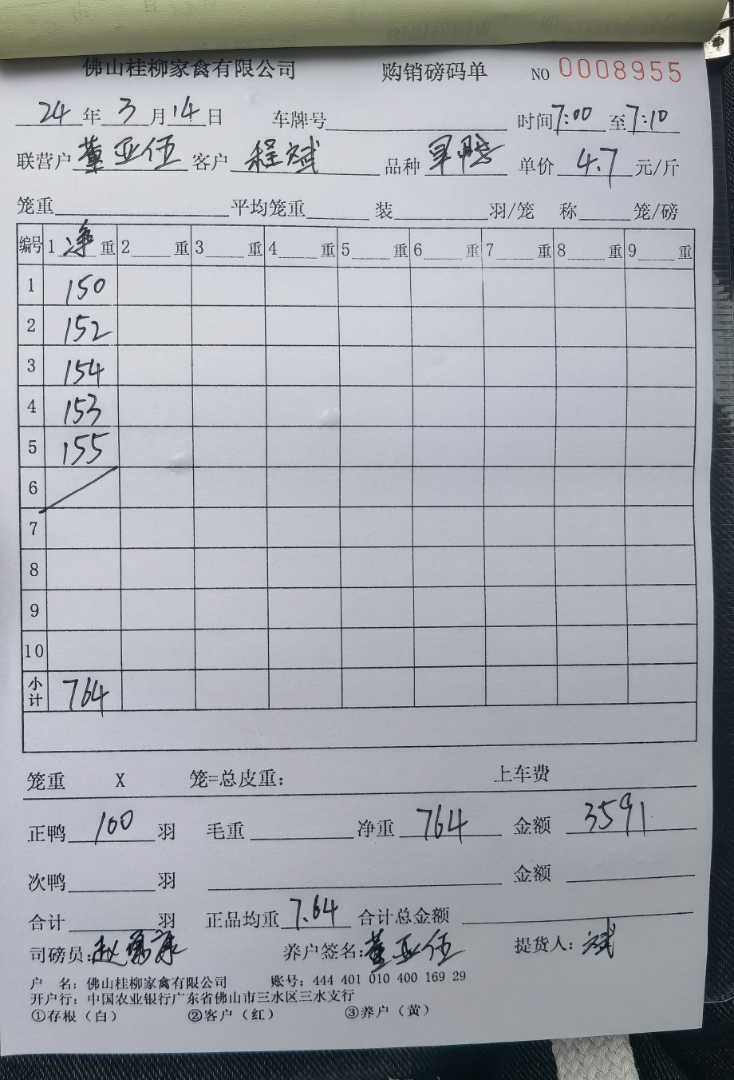 佛山桂柳家禽有限公司 购销磅码单 NO 0008955
24年3月14日 车牌号 时间7:00至7:10
联营户董亚伍客户程斌 品种 单价4.7元/斤
笼重 平均笼重 装 羽/笼 称 笼/磅
编号 1净重 2 重 3 重 4 重 5 重 6 重 7 重 8 重 9 重
1 150
2 152
3 154
4 153
5 155
6
7
8
9
10
小计 764
笼重 X 笼=总皮重: 上车费
正鸭100羽 毛重 净重764 金额3591
次鸭 羽 金额
合计 羽 正品均重7.64 合计总金额
司磅员:赵 养户签名:董亚伍 提货人:斌
户 名:佛山桂柳家禽有限公司 账号:444 401 010 400 169 29
开户行:中国农业银行广东省佛山市三水区三水支行
①存根(白) ②客户(红) ③养户(黄)